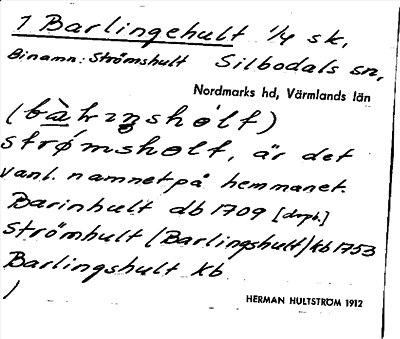 1 Barlingehult 1/4 sk,
Binamn: Strömshult Silbodals sn,
Nordmarks hd, Värmlands län
(bàrıŋshólt)
strømsholt, är det
vanl. namnet på hemmanet.
Barinhult db 1709 [dopb.]
Strömhult (Barlingshult) kb 1753
Barlingshult kb.
HERMAN HULTSTRÖM 1912